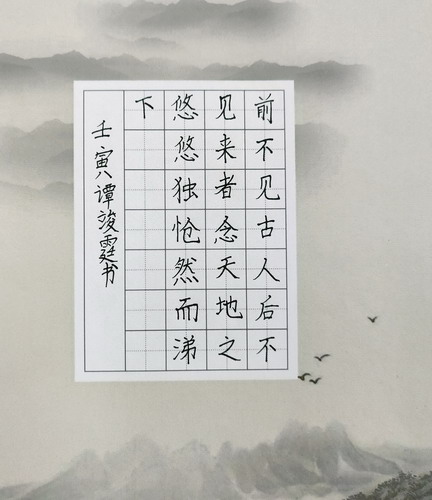 前不见古人后不
见来者念天地之
悠悠独怆然而涕
下
壬寅谭竣霆书